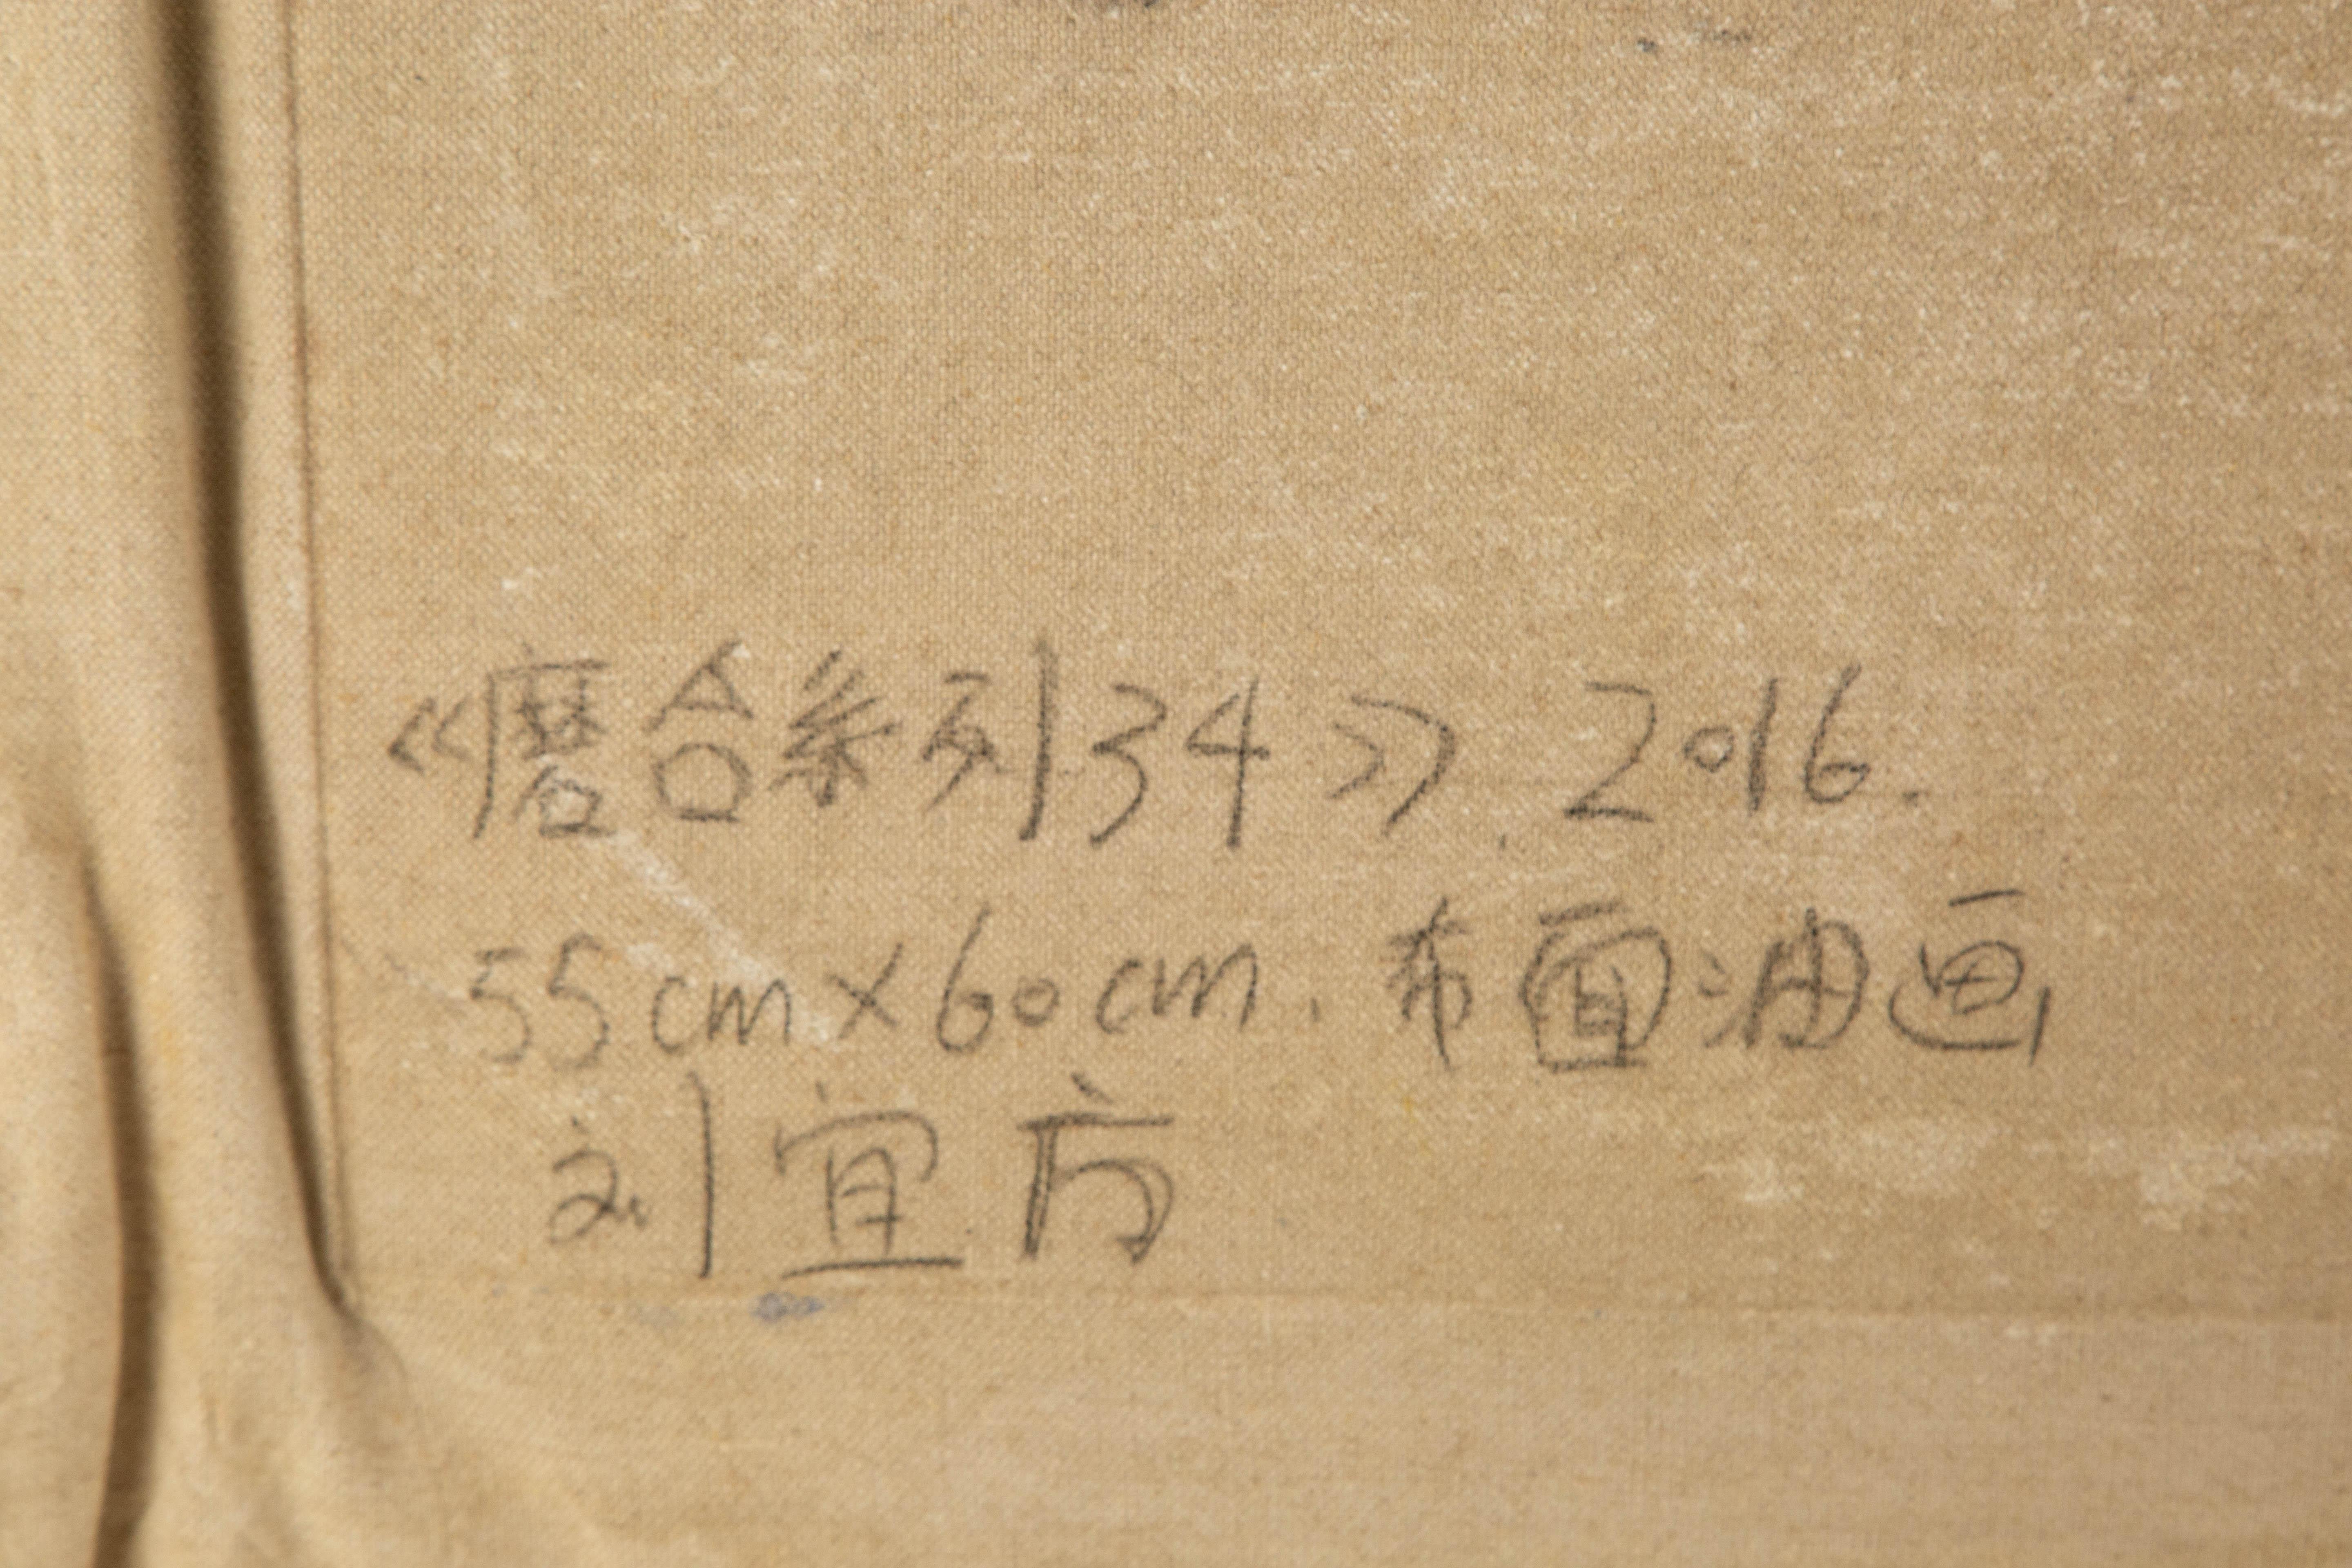 《磨合系列34》. 2016.
55cm×60cm. 布面油画
刘宜方